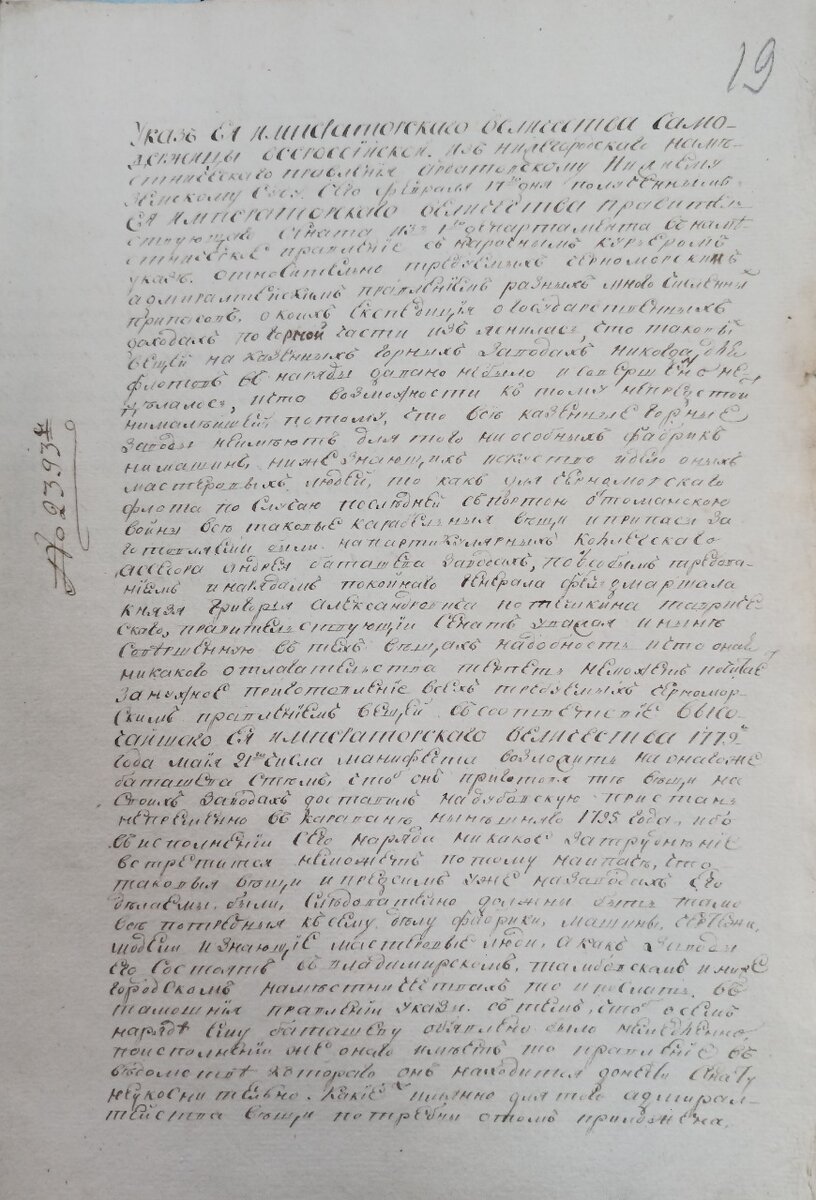 19
Указъ Ея Императорскаго величества само-
держицы всероссїйской. изъ нижегородскаго намѣ-
стническаго правленїя Ардатовскому Нижнему
земскому суду. Сего февраля 17го дня полученнымъ
Ея Императорскаго величества правитель
ствующаго сената изъ 1го департамента въ намѣ-
стническое правленїе съ нарочнымъ курьеромъ
указѣ относительно требуемыхъ Черноморскимъ
адмиралтейскимъ правленїемъ разныхъ многочисленныхъ
припасовъ, о коихъ експедицїя о государственныхъ
доходахъ по горной части изъяснилась, что таковыхъ
вещей на казенныхъ горныхъ заводахъ никогда для
флотовъ въ наряды давано небыло и совершенно не
дѣлалось, и что возможности къ тому не
ни малѣйшей потому, что всѣ казенные горные
заводы неимѣютъ для того ни особныхъ фабрикъ
ни машинъ, ниже знающихъ искуство и дѣло оныхъ
мастеровыхъ людей, то какъ для Черноморскаго
флота по случаю послѣдней съ портою оттоманскою
войны всѣ таковые карабельныя вещи и припасы за
готовляемы были на партикулярныхъ Колежскаго
асесора Андрея Баташева заводахъ, по особымъ требова-
нїямъ и нарядамъ покойнаго Генерала фельдмаршала
князя Григорья Александровича Потемкина Таврическ
скаго, правительствующїй Сенатъ уважая и нынѣ
совершенную въ тѣхъ вещахъ надобность и что оная
никакого отлагательства терпѣть неможетъ
за нужное приготовленїе всехъ требуемыхъ Черномор-
скимъ правленїемъ вещей. въ соответствїе высо-
чайшаго Ея Императорскаго величества 1779го
года маїя 21го числа манифеста возложить на онагоже
Баташева стемъ, чтобъ онъ приготовя те вещи на
своихъ заводахъ доставилъ на дубовскую пристань
непременно въ караванъ нынѣшняго 1795 года, ибо
въ исполненїи сего наряда никакое затрудненїе
встретится неможетъ потому наипаче, что
таковыя вещи и прежде уже на заводахъ его
дѣлаемы были, следовательно должны быть тамо
всѣ потребныя къ сему дѣлу фабрики, машины, чертежи,
модели и знающїе мастеровые люди, а какъ заводы
его состоятъ въ Владимирскомъ, тамбовскомъ и ниже
городскомъ наместничествахъ то и послать въ
тамошнїя правленїи указы. съ темъ, чтобъ о семъ
нарядѣ ему баташеву объявлено было немедленно
по исполненїи же онаго имѣетъ то правленїе въ
вѣдомствѣ котораго онъ находится донести Сенату
неукоснительно. Какїе имянно для того адмирал-
тейства вещи потребны о томъ приложена.
№ 2393й